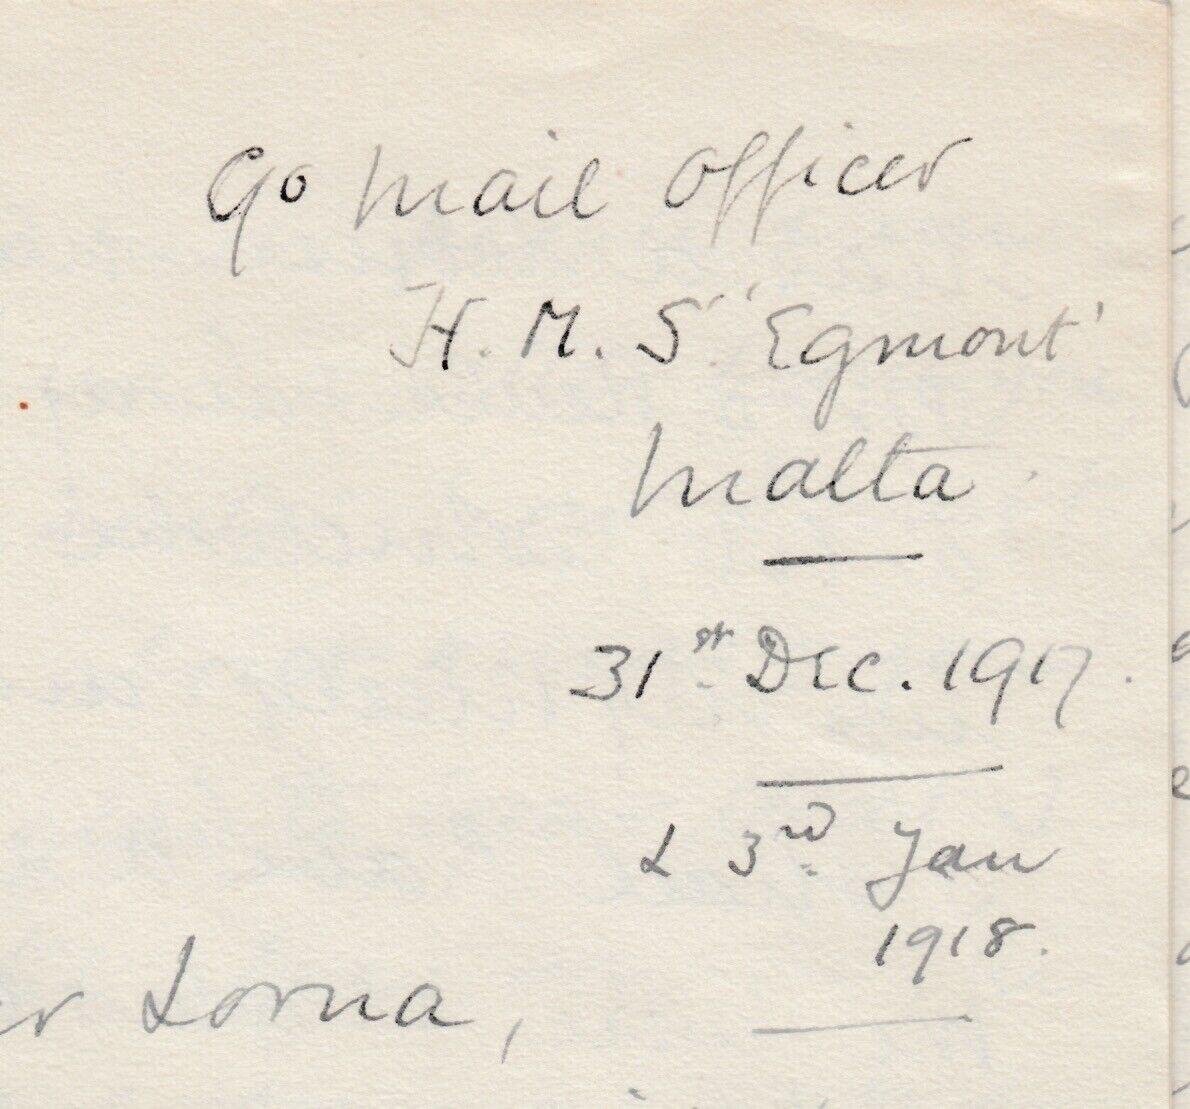 c/o Mail Officer
H.M.S. 'Egmont'
Malta.
31st Dec. 1917.
& 3rd Jan
1918.
Lorna,